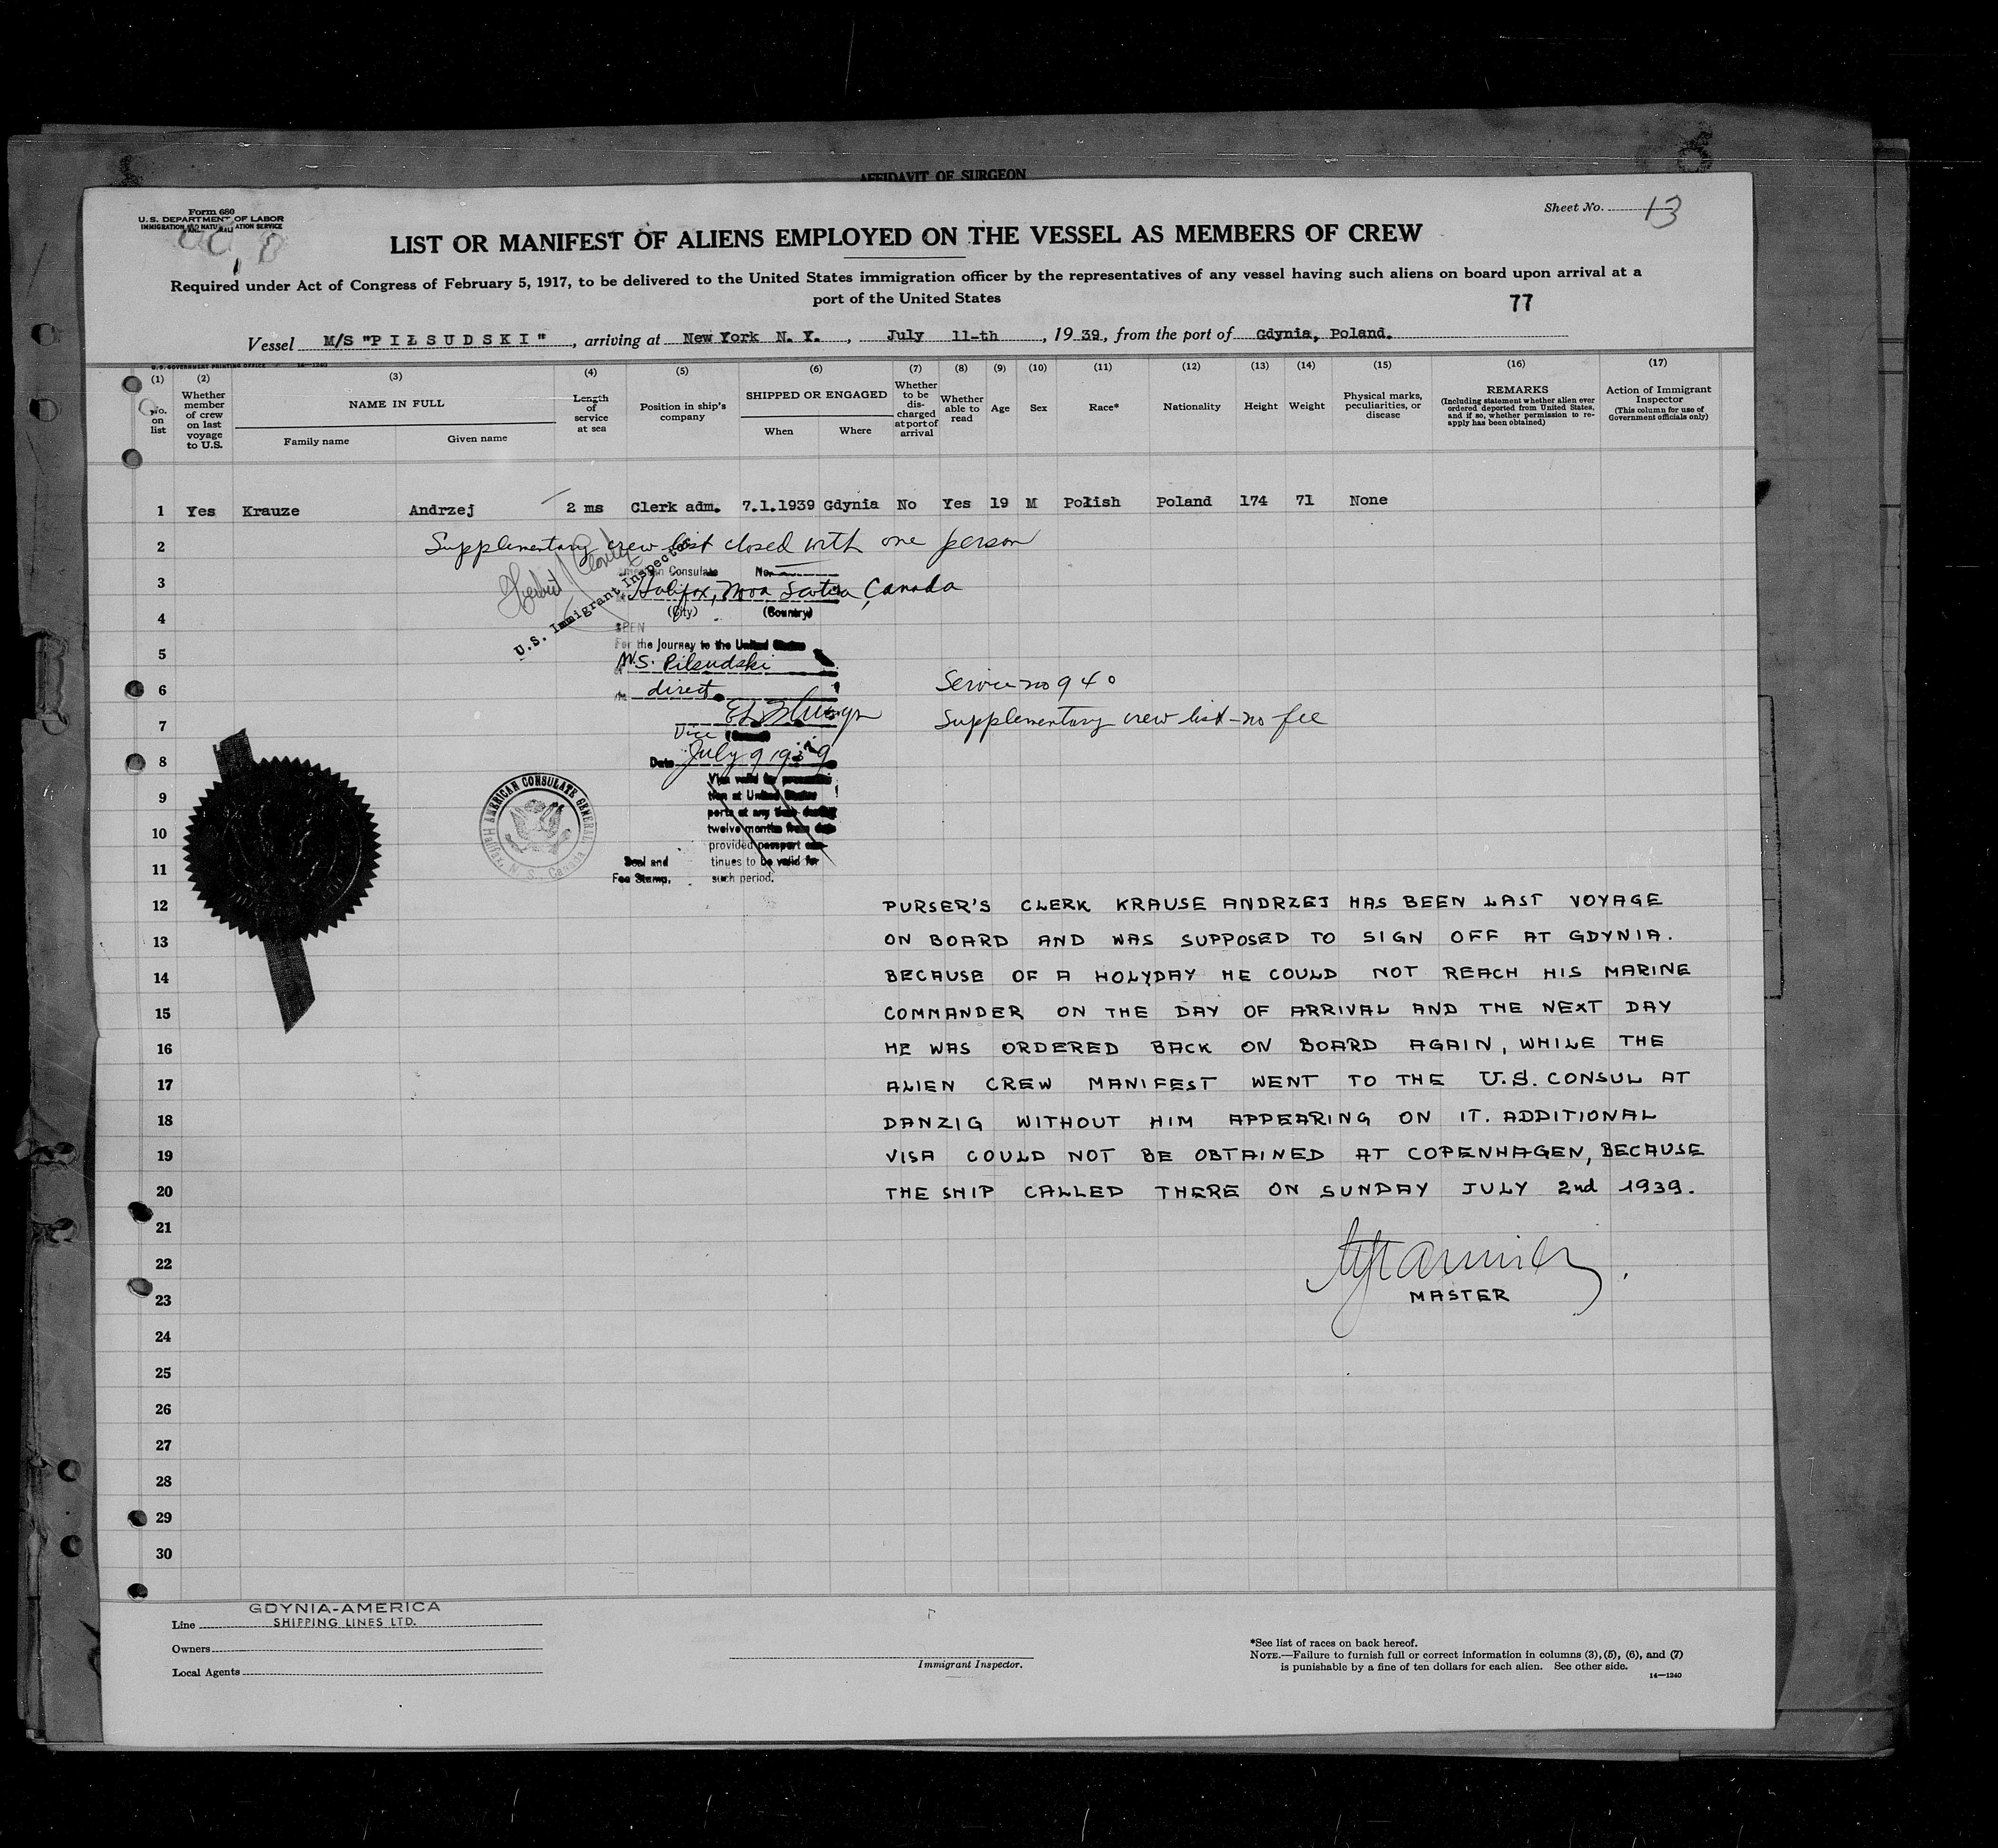 AFFIDAVIT OF SURGEON
Form 680
U.S. DEPARTMENT OF LABOR
IMMIGRATION AND NATURALIZATION SERVICE
Sheet No. 13
LIST OR MANIFEST OF ALIENS EMPLOYED ON THE VESSEL AS MEMBERS OF CREW
Required under Act of Congress of February 5, 1917, to be delivered to the United States immigration officer by the representatives of any vessel having such aliens on board upon arrival at a
port of the United States
77
Vessel M/S "PIŁSUDSKI", arriving at New York N. Y., July 11-th, 1939, from the port of Gdynia, Poland.
U.S. GOVERNMENT PRINTING OFFICE 14—1240
(1) No. on list
(2) Whether member of crew on last voyage to U.S.
(3) NAME IN FULL
Family name Given name
(4) Length of service at sea
(5) Position in ship's company
(6) SHIPPED OR ENGAGED
When Where
(7) Whether to be discharged at port of arrival
(8) Whether able to read
(9) Age
(10) Sex
(11) Race*
(12) Nationality
(13) Height
(14) Weight
(15) Physical marks, peculiarities, or disease
(16) REMARKS
(Including statement whether alien ever ordered deported from United States, and if so, whether permission to re-apply has been obtained)
(17) Action of Immigrant Inspector
(This column for use of Government officials only)
1 Yes Krauze Andrzej 2 ms Clerk adm. 7.1.1939 Gdynia No Yes 19 M Polish Poland 174 71 None
2 Supplementary crew list closed with one person
U.S. Immigrant Inspector
American Consulate No.
3 Halifax, Nova Scotia, Canada
(City) (Country)
4
SEEN
For the Journey to the United States
5
M.S. Pilsudski
6 direct Service no 940
7 Supplementary crew list - no fee
Vice
8 Date July 9 1939
Visa valid for presentation at United States
9
10 ports at any time during
twelve months from date
provided passport continues to be valid for
11 such period.
Seal and
Fee Stamp.
AMERICAN CONSULATE GENERAL
Halifax, N. S., Canada
12 PURSER'S CLERK KRAUSE ANDRZEJ HAS BEEN LAST VOYAGE
13 ON BOARD AND WAS SUPPOSED TO SIGN OFF AT GDYNIA.
14 BECAUSE OF A HOLYDAY HE COULD NOT REACH HIS MARINE
15 COMMANDER ON THE DAY OF ARRIVAL AND THE NEXT DAY
16 HE WAS ORDERED BACK ON BOARD AGAIN, WHILE THE
17 ALIEN CREW MANIFEST WENT TO THE U.S. CONSUL AT
18 DANZIG WITHOUT HIM APPEARING ON IT. ADDITIONAL
19 VISA COULD NOT BE OBTAINED AT COPENHAGEN, BECAUSE
20 THE SHIP CALLED THERE ON SUNDAY JULY 2nd 1939.
21
22
23 MASTER
24
25
26
27
28
29
30
Line GDYNIA-AMERICA
SHIPPING LINES LTD.
Owners
Local Agents
Immigrant Inspector.
*See list of races on back hereof.
NOTE.—Failure to furnish full or correct information in columns (3), (5), (6), and (7)
is punishable by a fine of ten dollars for each alien. See other side.
14—1240